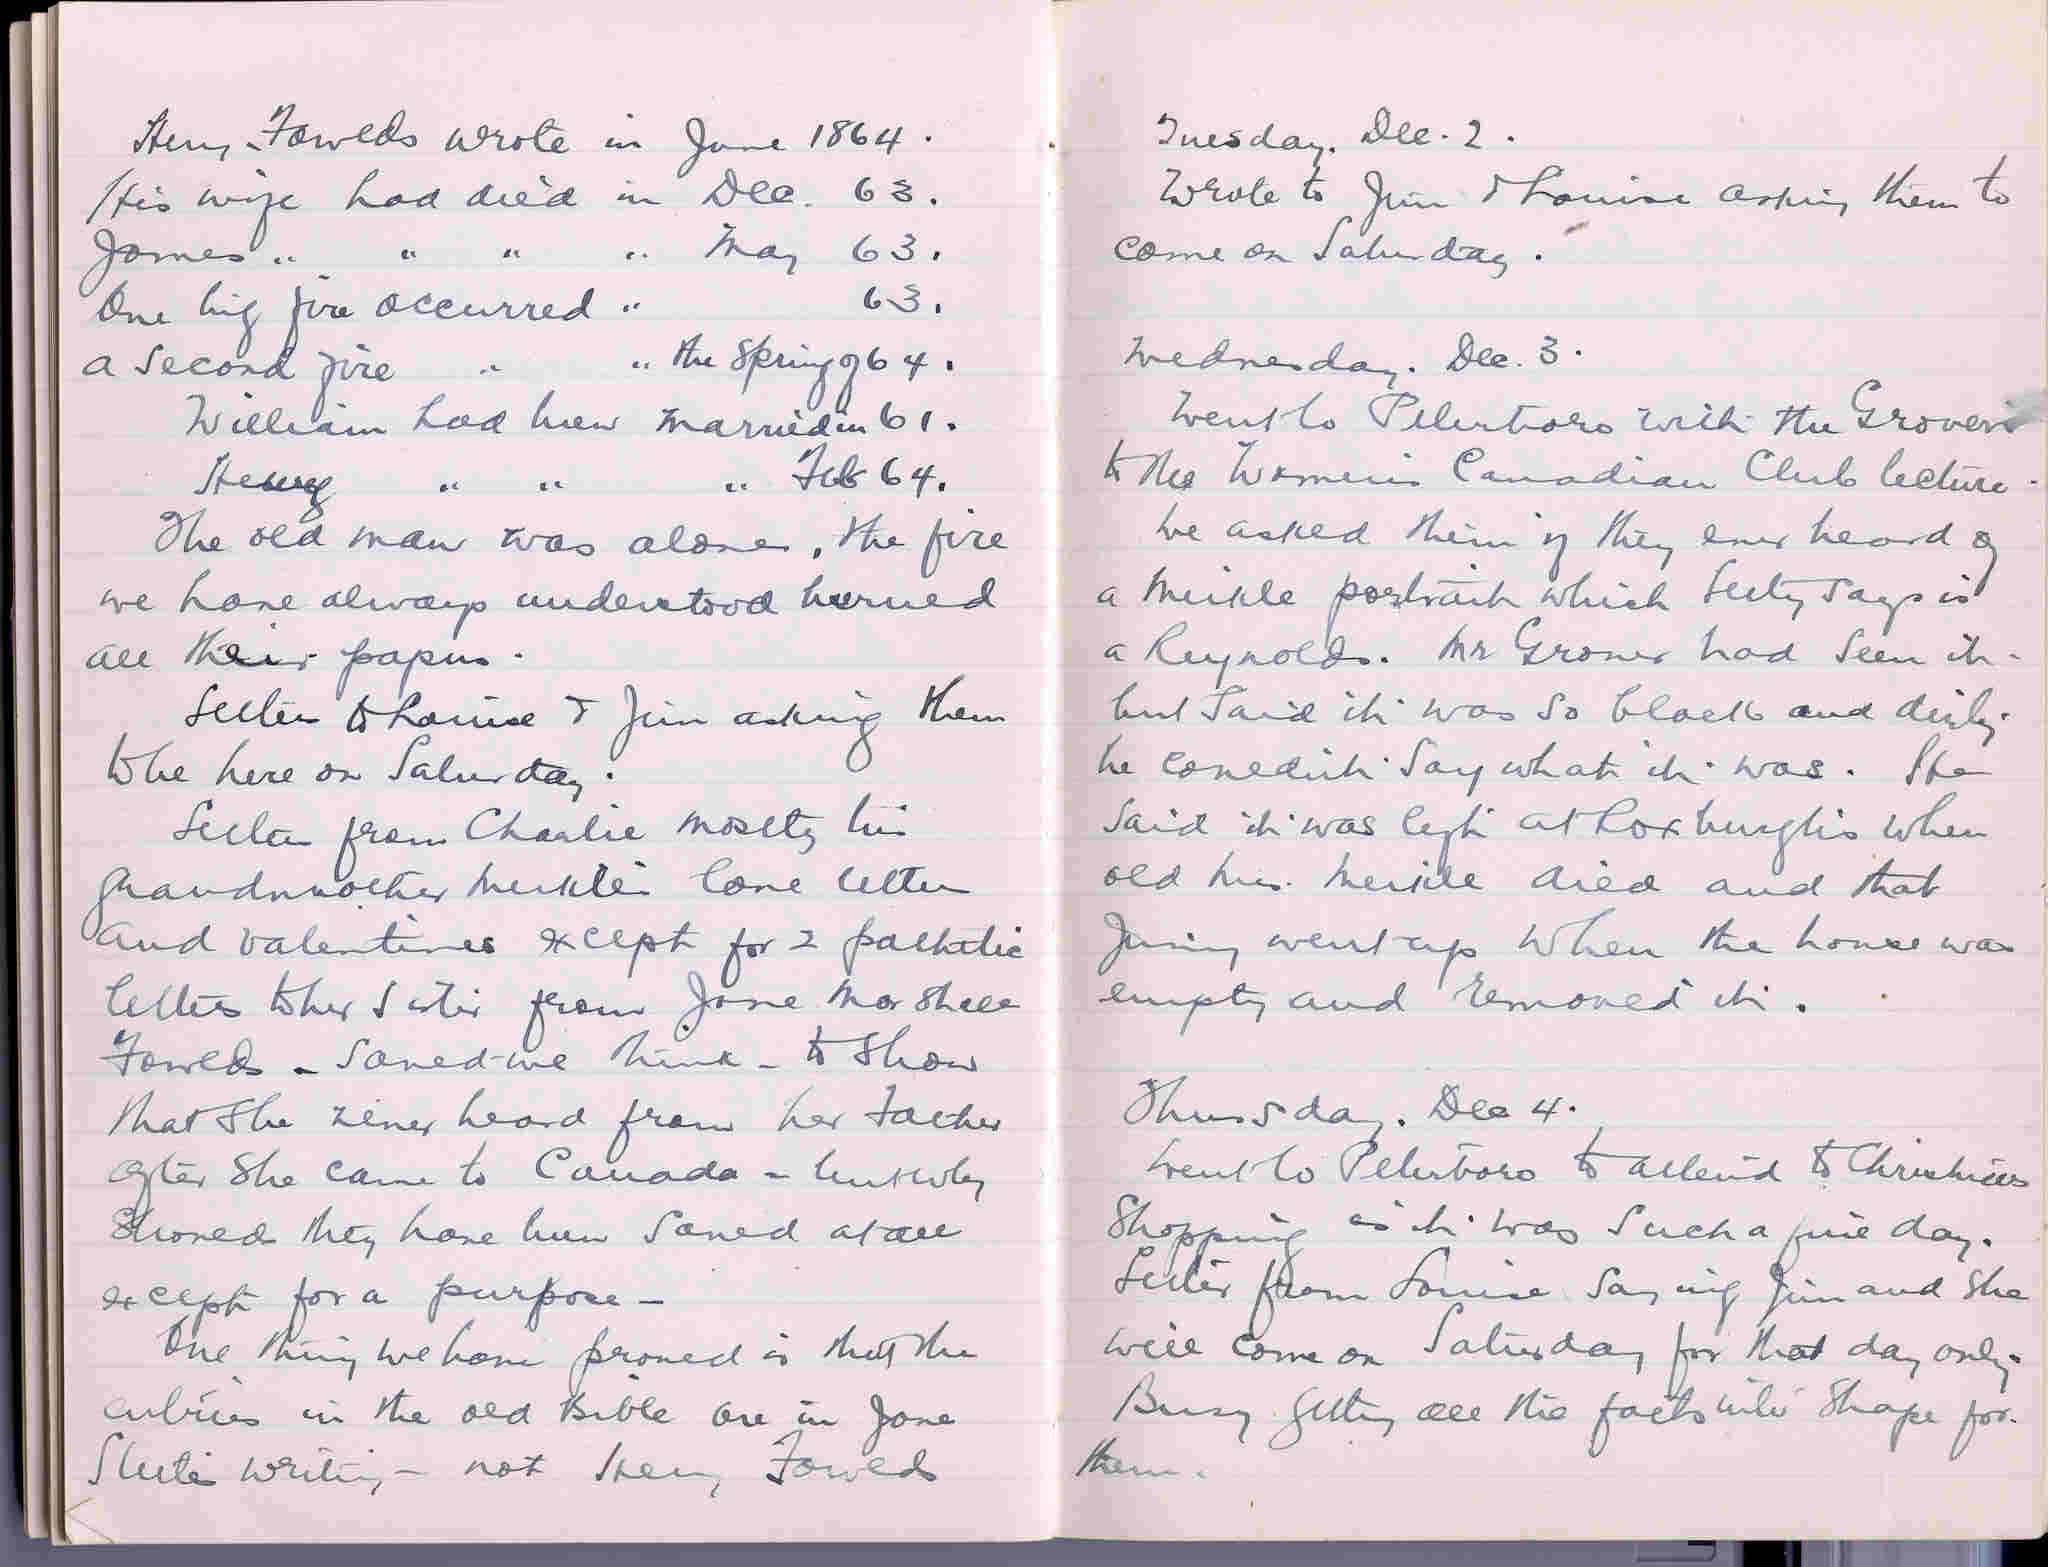 Henry Fowlds wrote in June 1864.
His wife had died in Dec. 63.
James " " " " May 63.
One big fire occurred " 63.
a second fire " " the Spring of 64.
William had been married in 61.
Henry " " " Feb 64.
The old man was alone, the fire
we have always understood burned
all their papers.
Letter to Louise & Jim asking them
to be here on Saturday.
Letter from Charlie mostly his
grandmother Meikle's love letters
and valentines except for 2 pathetic
letters to her sister from Jane Marshall
Fowlds - saved - we think - to show
that she never heard from her Father
after she came to Canada - but why
should they have been saved at all
except for a purpose -
One thing we have proved is that the
entries in the old Bible are in Jane
writing - not Henry Fowlds
Tuesday. Dec. 2.
Wrote to Jim & Louise asking them to
come on Saturday.
Wednesday. Dec. 3.
Went to Peterboro with the Grovers
to the Women's Canadian Club lecture.
We asked them if they ever heard of
a Meikle portrait which says is
a Reynolds. Mr Grover had seen it -
but said it was so black and dirty
he couldn't say what it was. She
said it was left at Roxburgh's when
old Mrs. Meikle died and that
went up when the house was
empty and removed it.
Thursday. Dec 4.
Went to Peterboro to attend to Christmas
Shopping as it was such a fine day.
Letter from Louise saying Jim and she
will come on Saturday for that day only.
Busy getting all the facts into shape for
them.